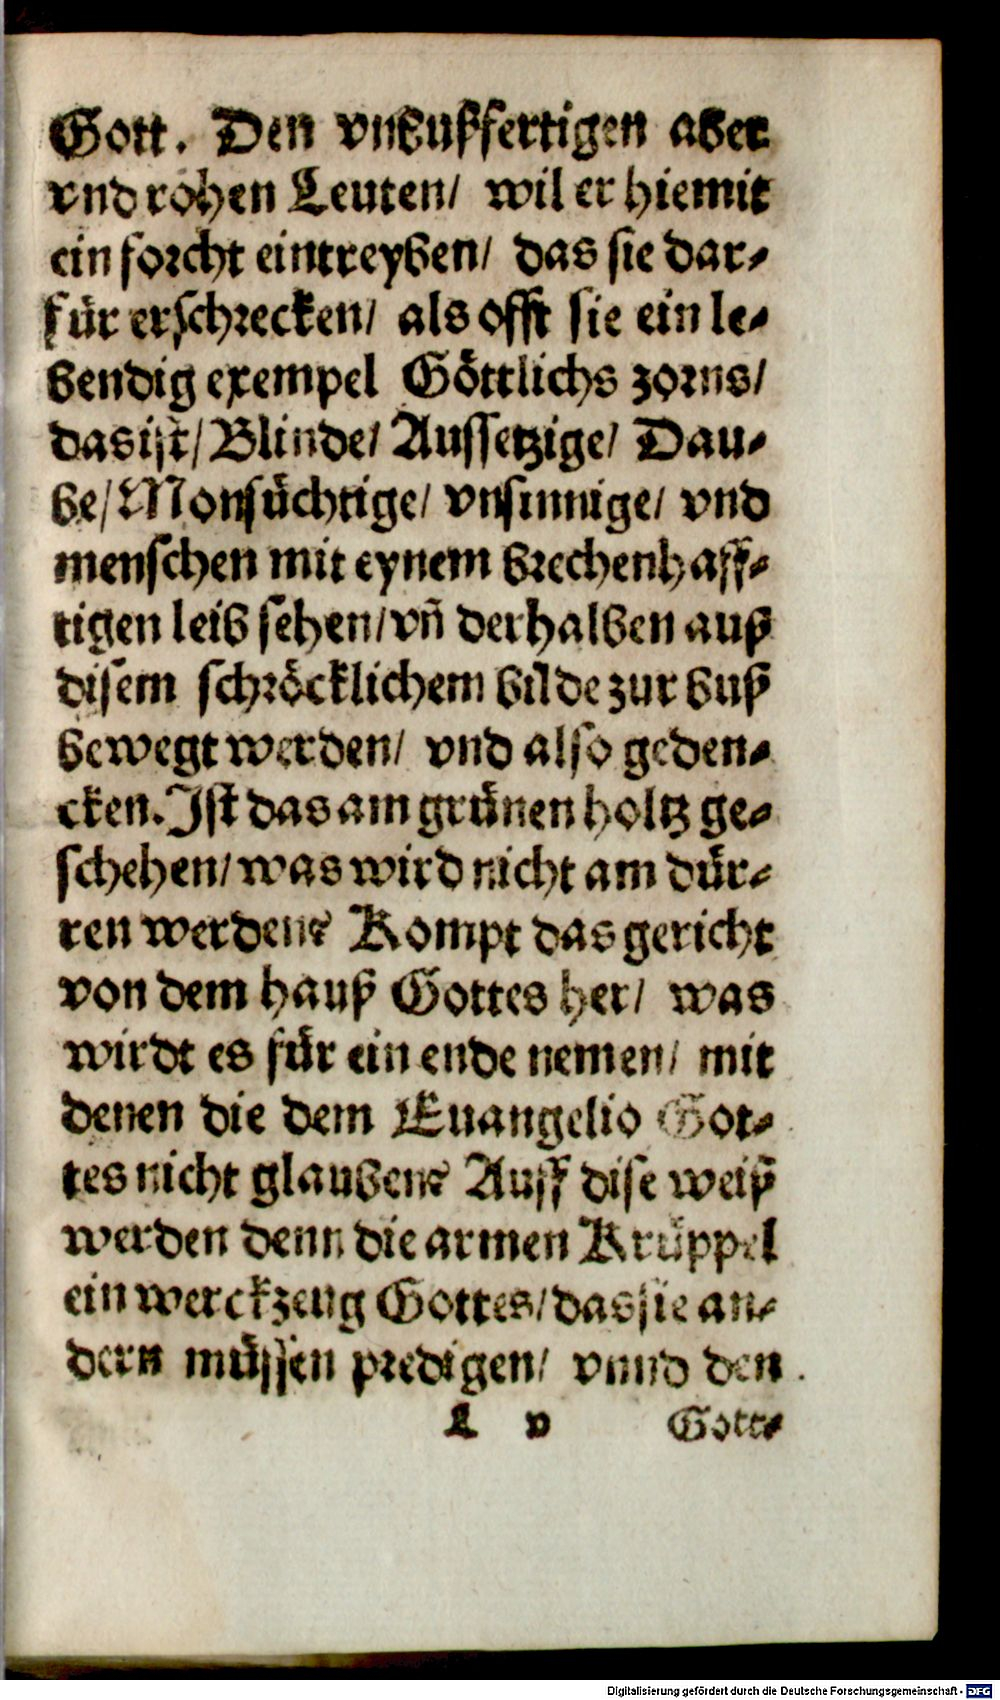 Gott. Den vnbußfertigen aber
vnd rohen Leuten/ wil er hiemit
ein forcht eintreyben/ das sie dar⸗
für erschrecken/ als offt sie ein le⸗
bendig exempel Göttlichs zorns/
das ist/ Blinde/ Aussetzige/ Dau⸗
be/ Monsüchtige/ vnsinnige/ vnd
menschen mit eynem brechenhaff⸗
tigen leib sehen/ vñ derhalben auß
disem schröcklichem bilde zur buß
bewegt werden/ vnd also geden⸗
cken. Ist das am grünen holtz ge⸗
schehen/ was wird nicht am dür⸗
ren werden? Kompt das gericht
von dem hauß Gottes her/ was
wirdt es für ein ende nemen/ mit
denen die dem Euangelio Got⸗
tes nicht glauben? Auff dise weiß
werden denn die armen Krüppel
ein werckzeug Gottes/ das sie an⸗
dern müssen predigen/ vnnd den
L v Gott⸗
Digitalisierung gefördert durch die Deutsche Forschungsgemeinschaft - DFG